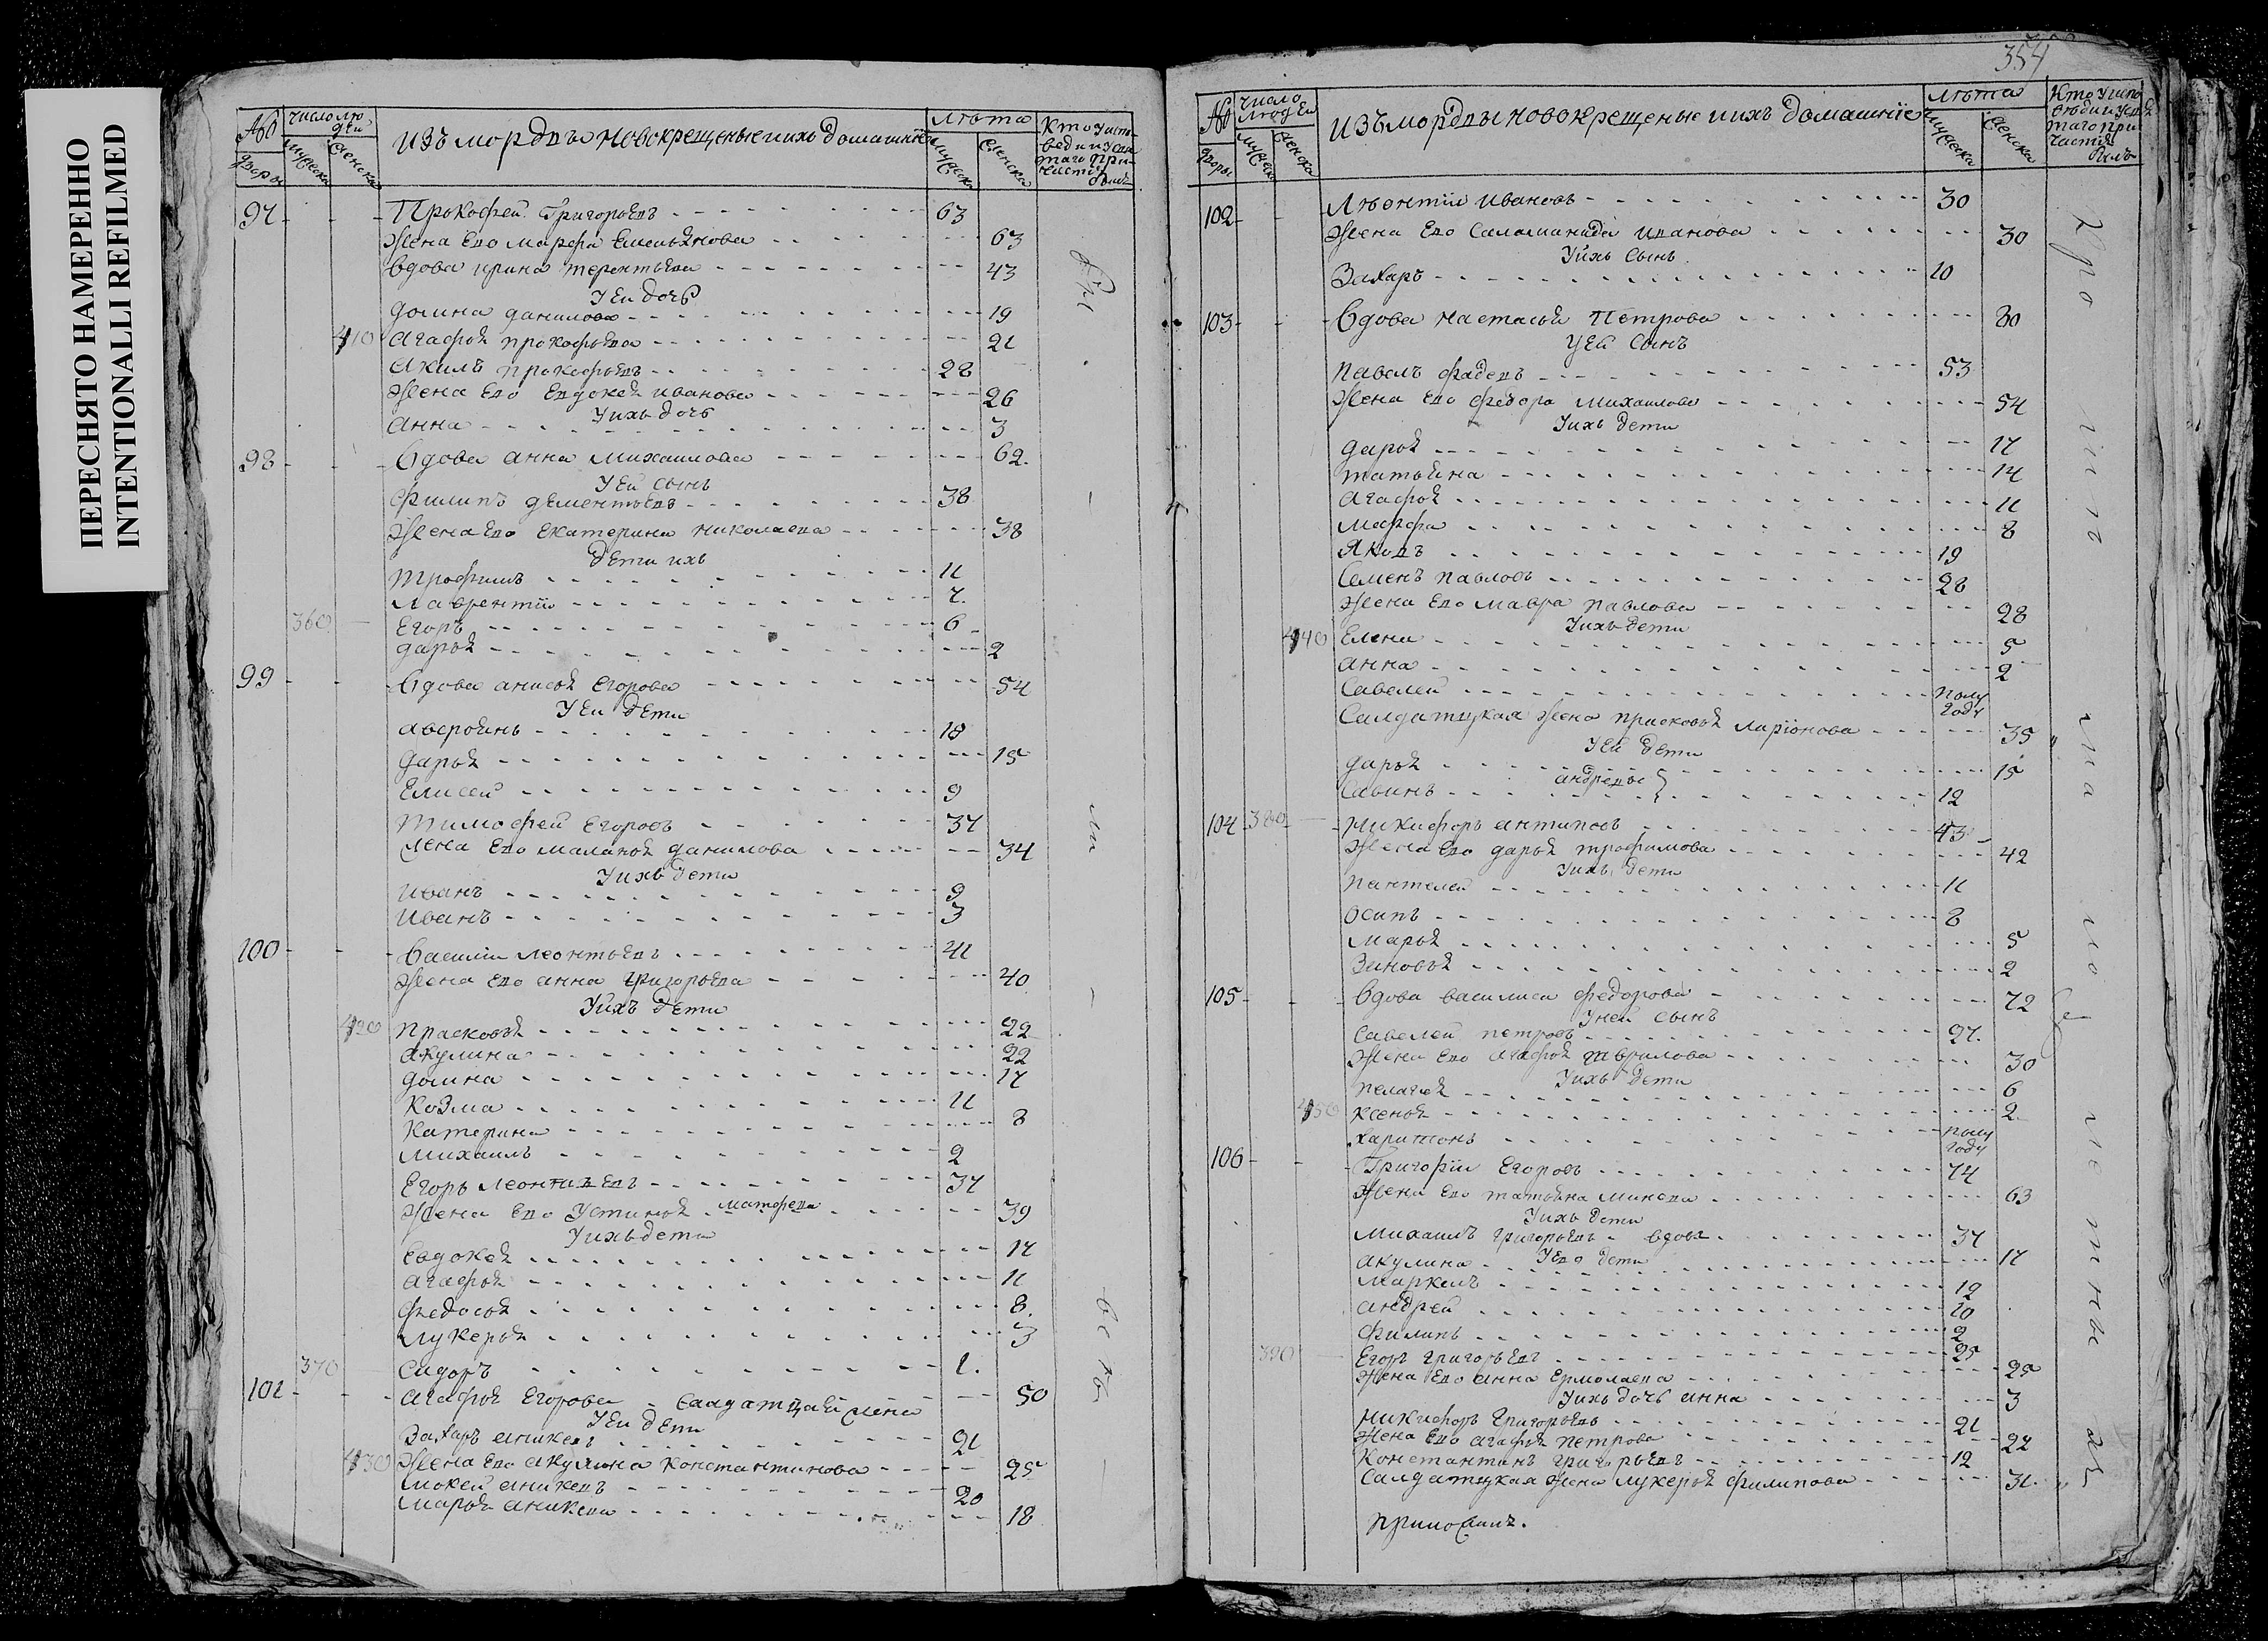 ПЕРЕСНЯТО НАМЕРЕННО
INTENTIONALLI REFILMED
№ число лю
дей
Изъ мордвы новокрещеные и ихъ домашние
лѣта
Кто у испо
веди и у свя
таго при
частія
былъ
дворы мужеска женска мужеска женска
97 Прокофей Григорьевъ 63
Жена Ево Марфа Емельянова 63
Вдова ирина терентьева 43
У Еи дочь
домна данилова 19
410 Агафья прокофьева 21
Акимъ прокофьевъ 28
Жена Ево Евдокея иванова 26
У ихъ дочь
Анна 3
98 Вдова анна михаилова 62.
У Еи сынъ
Филипъ дементьевъ 38
Жена Ево Екатерина николаева 38
дети ихъ
Трофимъ 11
Лаврентіи 7.
360 Егоръ 6
дарья 2
99 Вдова анисья Егорова 54
У Еи дети
аверьянъ 18
дарья 15
Елисей 9
Тимофей Егоровъ 37
жена Ево маланья данилова 34
У ихъ дети
Иванъ 9
Иванъ 3
100 Василіи леонтьевъ 41
Жена Ево анна григорьева 40
У ихъ дети
420 прасковья 22
акулина 22
домна 17
Козма 11
Катерина 8
михаилъ 2
Егоръ леонтьевъ 37
Жена Ево Устинья матфеева 39
У ихъ дети
Евдокея 17
агафья 11
Федосья 8.
лукерья 3
370 Сидоръ 1.
101 агафья Егорова салдатцкая жена 50
У Еи дети
Захаръ аникевъ 21
430 Жена Ево акулина константинова 25
мокей аникевъ 20
марья аникева 18
354
№ число
людей
Изъ мордвы новокрещеные и ихъ домашніе
лѣта
Кто у испо
веди и у свя
таго при
частія
былъ
дворы мужеска женска мужеска женска
102 Леонтіи ивановъ 30
Жена Ево Саламанида иванова 30
У ихъ сынъ
Захаръ 10
103 Вдова настасья Петрова 80
У Еи сынъ
павелъ фадевъ 53
Жена Ево федора михаилова 54
У ихъ дети
дарья 17
татьяна 14
агафья 11
марфа 8
Яковъ 19
Семенъ павловъ 28
Жена Ево мавра павлова 28
У ихъ дети
440 Елена 5
анна 2
Савелей полу
году
Салдатцкая жена прасковья ларіонова 35
У Ей дети
дарья 15
андревы
Савинъ 12
104 380 никифоръ антиповъ 43
Жена Ево дарья трофимова 42
У ихъ дети
пантелей 11
осипъ 8
марья 5
Зиновья 2
105 Вдова василиса федорова 72
У ней сынъ
Савелей петровъ 27.
Жена Ево агафья гаврилова 30
У ихъ дети
пелагея 6
450 ксенья 2
харитонъ полу
году
106 Григоріи Егоровъ 74
Жена Ево татьяна минева 63
У ихъ дети
михаилъ григорьевъ вдовъ 37
У Ево дети
акулина 17
маркелъ 12
андрей 10
филипъ 2
390 Егоръ григорьевъ 25
Жена Ево анна Ермолаева 25
У ихъ дочь анна 3
никифоръ григорьевъ 21
Жена Ево агафья петрова 22
Константинъ григорьевъ 12
Салдатцкая жена лукерья филипова 31.